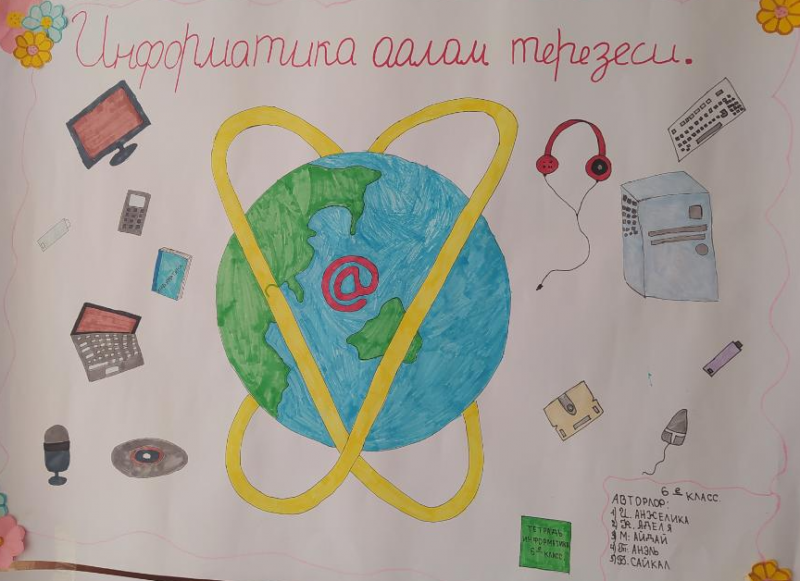 Информатика аалам терезеси.
@
6 е класс
АВТОРЛОР:
1) Ц. АНЖЕЛИКА
2) Ж. АДЕЛЯ
3) М: АЙДАЙ
4) Т. АНЭЛЬ
5) Б. САЙКАЛ
ТЕТРАДЬ
ИНФОРМАТИКА
КЛАСС